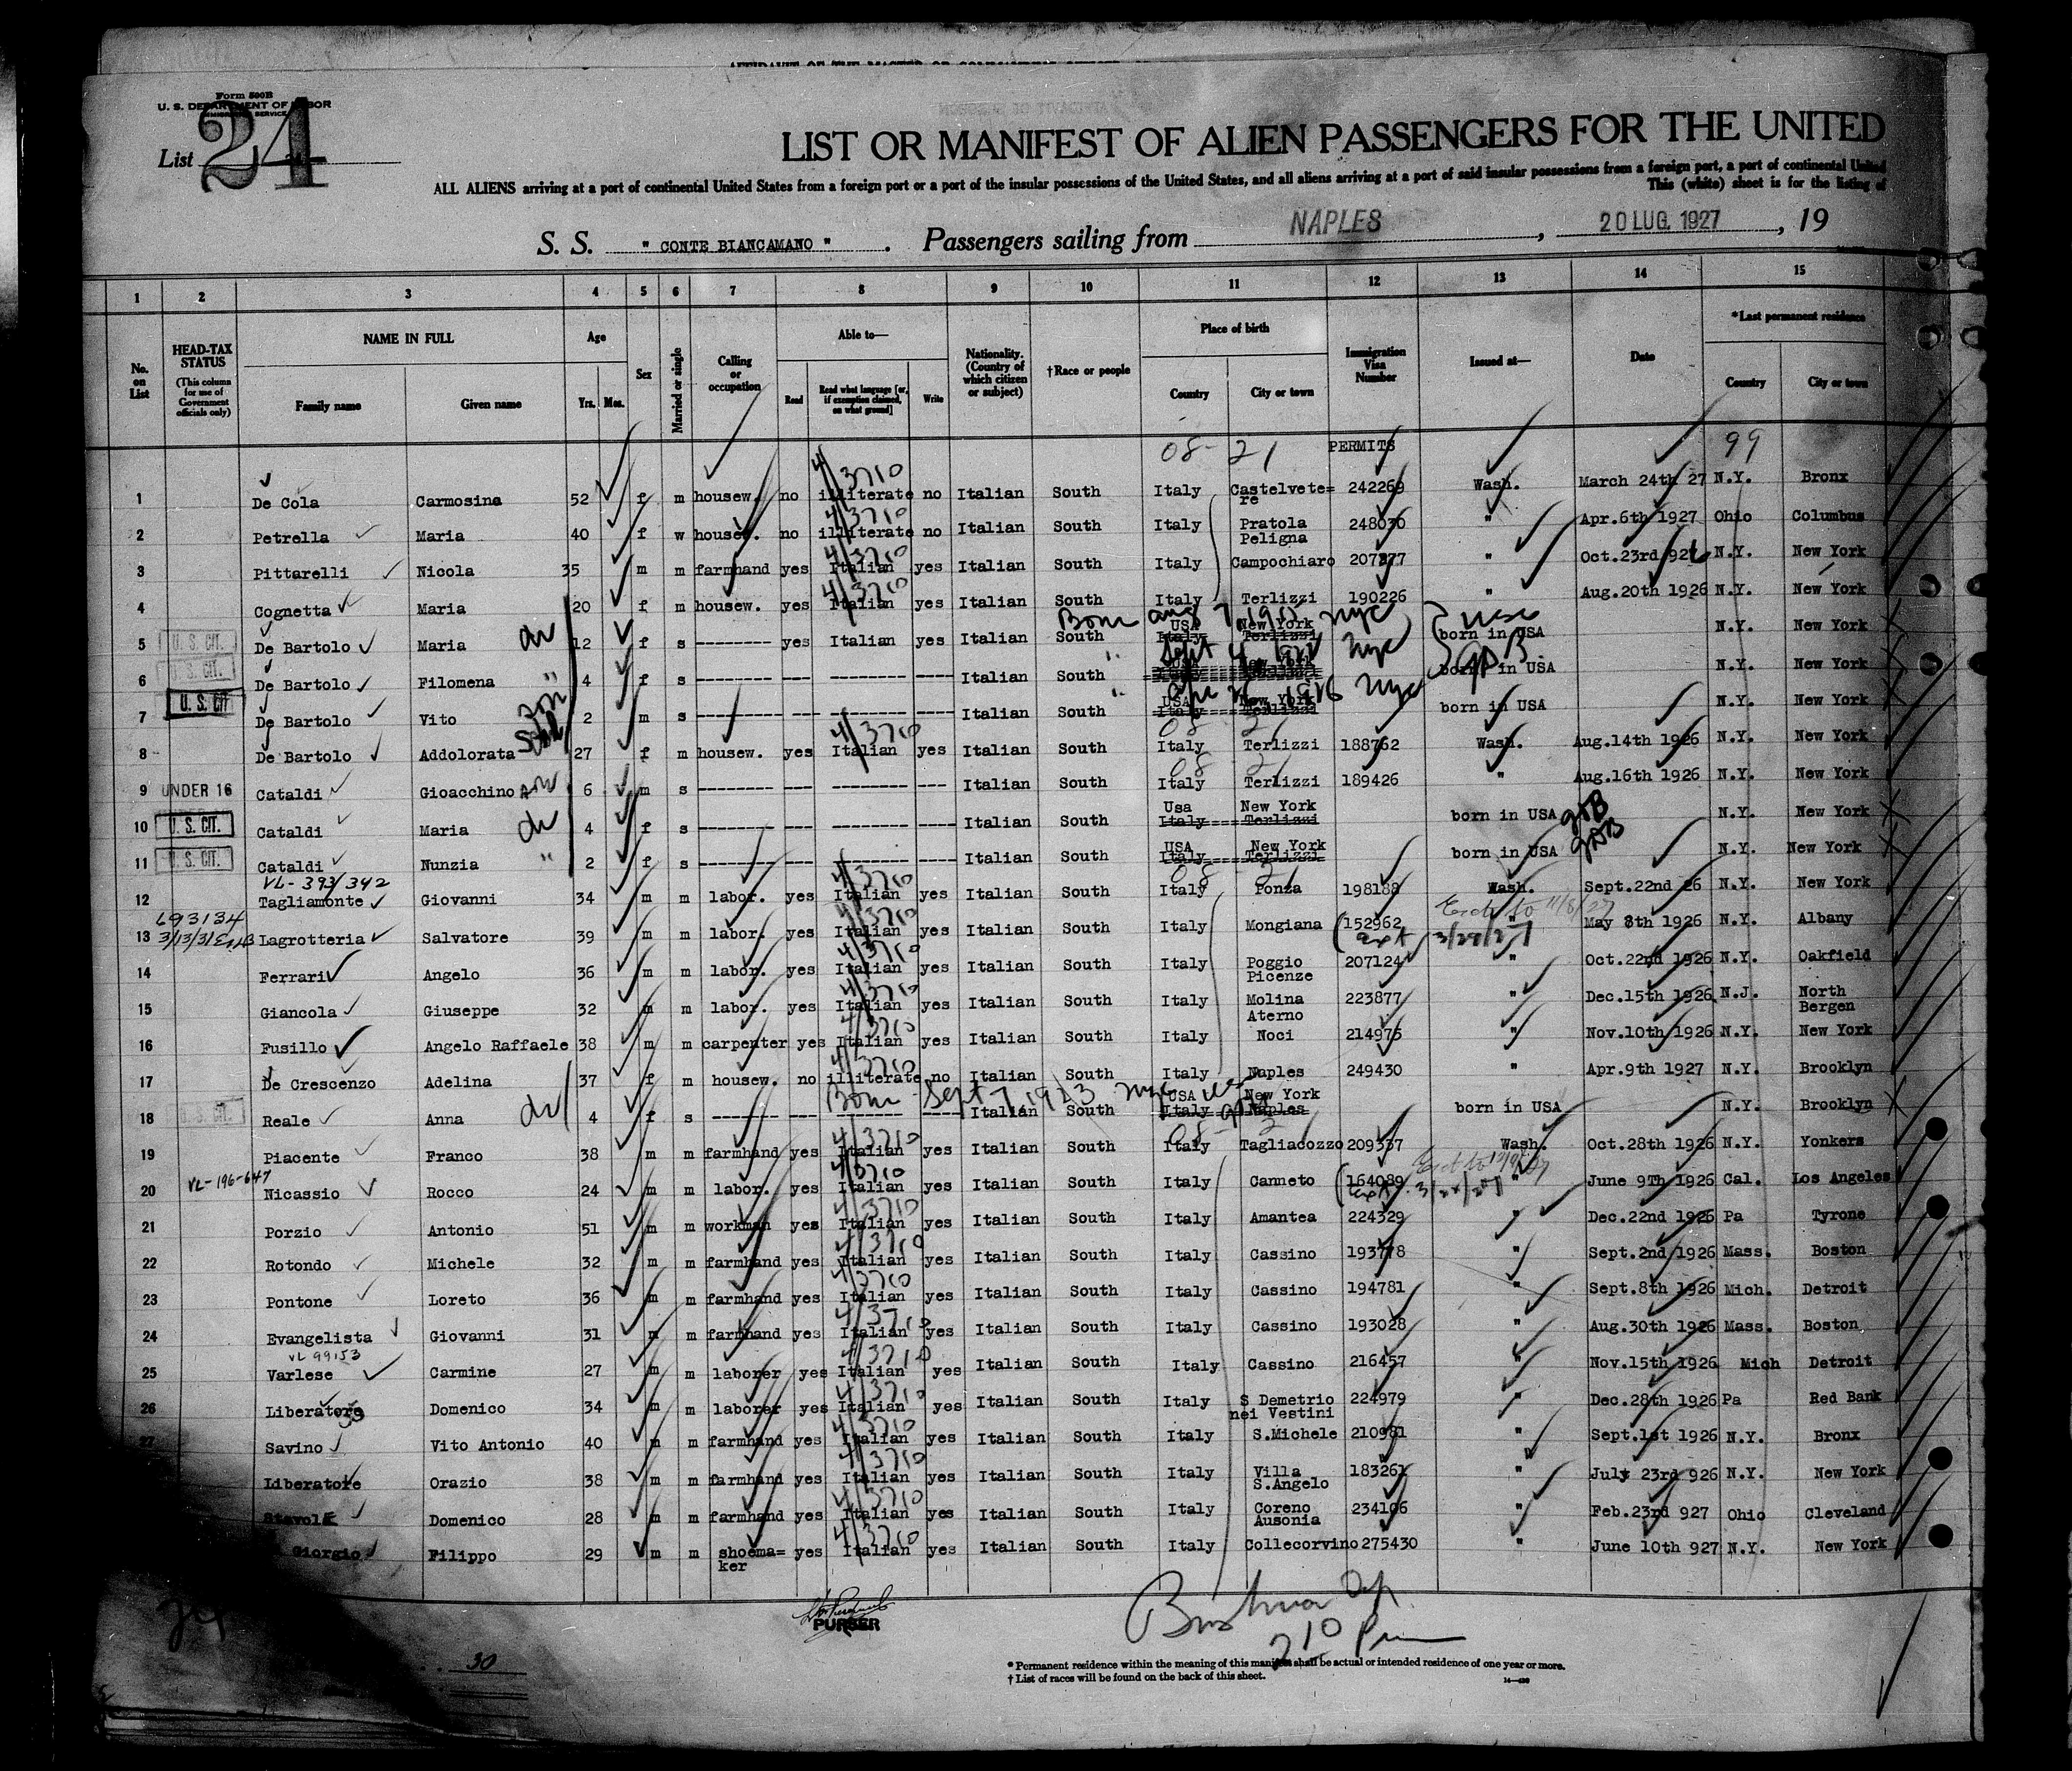 Form 500B
U. S. DEPARTMENT OF LABOR
IMMIGRATION SERVICE
List 24
LIST OR MANIFEST OF ALIEN PASSENGERS FOR THE UNITED
ALL ALIENS arriving at a port of continental United States from a foreign port or a port of the insular possessions of the United States, and all aliens arriving at a port of said insular possessions from a foreign port, a port of continental United
This (white) sheet is for the listing of
S. S. " CONTE BIANCAMANO " . Passengers sailing from NAPLES , 20 LUG. 1927 , 19
1 2 3 4 5 6 7 8 9 10 11 12 13 14 15
No. on List
HEAD-TAX STATUS (This column for use of Government officials only)
NAME IN FULL Family name Given name
Age Yrs. Mos.
Sex
Married or single
Calling or occupation
Able to— Read Read what language [or, if exemption claimed, on what ground] Write
Nationality. (Country of which citizen or subject)
†Race or people
Place of birth Country City or town
Immigration Visa Number
Issued at—
Date
*Last permanent residence Country City or town
08-21 PERMITS 99
1 De Cola Carmosina 52 f m housew. no illiterate no Italian South Italy Castelvete=re 242269 Wash. March 24th 27 N.Y. Bronx
2 Petrella Maria 40 f w housew. no illiterate no Italian South Italy Pratola Peligna 248030 " Apr.6th 1927 Ohio Columbus
3 Pittarelli Nicola 35 m m farmhand yes Italian yes Italian South Italy Campochiaro 207877 " Oct.23rd 926 N.Y. New York
4 Cognetta Maria 20 f m housew. yes Italian yes Italian South Italy Terlizzi 190226 " Aug.20th 1926 N.Y. New York
5 U. S. CIT. De Bartolo Maria 12 f s -------- yes Italian yes Italian South USA Italy New York Terlizzi born in USA N.Y. New York
6 U. S. CIT. De Bartolo Filomena 4 f s -------- --- --------- ---- Italian South USA New York born in USA N.Y. New York
7 U. S. CIT De Bartolo Vito 2 m s -------- --- --------- ---- Italian South USA Italy New York Terlizzi born in USA N.Y. New York
8 De Bartolo Addolorata 27 f m housew. yes Italian yes Italian South Italy Terlizzi 188762 Wash. Aug.14th 1926 N.Y. New York
9 UNDER 16 Cataldi Gioacchino 6 m s -------- --- --------- ---- Italian South Italy Terlizzi 189426 " Aug.16th 1926 N.Y. New York
10 U. S. CIT. Cataldi Maria 4 f s -------- --- --------- ---- Italian South Usa Italy New York Terlizzi born in USA N.Y. New York
11 U. S. CIT. Cataldi Nunzia 2 f s -------- --- --------- ---- Italian South USA Italy New York Terlizzi born in USA N.Y. New York
VL-393/342
12 Tagliamonte Giovanni 34 m m labor. yes Italian yes Italian South Italy Ponza 198188 Wash. Sept.22nd 26 N.Y. New York
693134
13 Lagrotteria Salvatore 39 m m labor. yes Italian yes Italian South Italy Mongiana 152962 " May 8th 1926 N.Y. Albany
14 Ferrari Angelo 36 m m labor. yes Italian yes Italian South Italy Poggio Picenze 207124 " Oct.22nd 1926 N.Y. Oakfield
15 Giancola Giuseppe 32 m m labor. yes Italian yes Italian South Italy Molina Aterno 223877 " Dec.15th 1926 N.J. North Bergen
16 Fusillo Angelo Raffaele 38 m m carpenter yes Italian yes Italian South Italy Noci 214975 " Nov.10th 1926 N.Y. New York
17 De Crescenzo Adelina 37 f m housew. no illiterate no Italian South Italy Naples 249430 " Apr.9th 1927 N.Y. Brooklyn
Born Sept 7 1923 nyc
18 U. S. CIT. Reale Anna 4 f s -------- --- Italian South USA Italy New York Naples born in USA N.Y. Brooklyn
19 Piacente Franco 38 m m farmhand yes Italian yes Italian South Italy Tagliacozzo 209337 Wash. Oct.28th 1926 N.Y. Yonkers
VL-196-647
20 Nicassio Rocco 24 m m labor. yes Italian yes Italian South Italy Canneto 164089 " June 9Th 1926 Cal. Los Angeles
21 Porzio Antonio 51 m m workman yes Italian yes Italian South Italy Amantea 224329 " Dec.22nd 1926 Pa Tyrone
22 Rotondo Michele 32 m m farmhand yes Italian yes Italian South Italy Cassino 193778 " Sept.2nd 1926 Mass. Boston
23 Pontone Loreto 36 m m farmhand yes Italian yes Italian South Italy Cassino 194781 " Sept.8th 1926 Mich. Detroit
24 Evangelista Giovanni 31 m m farmhand yes Italian yes Italian South Italy Cassino 193028 " Aug.30th 1926 Mass. Boston
VL 99153
25 Varlese Carmine 27 m m laborer yes Italian yes Italian South Italy Cassino 216457 " Nov.15th 1926 Mich Detroit
26 Liberatore Domenico 34 m m laborer yes Italian yes Italian South Italy S Demetrio nei Vestini 224979 " Dec.28th 1926 Pa Red Bank
27 Savino Vito Antonio 40 m m farmhand yes Italian yes Italian South Italy S.Michele 210981 " Sept.1st 1926 N.Y. Bronx
Liberatore Orazio 38 m m farmhand yes Italian yes Italian South Italy Villa S.Angelo 183261 " July 23rd 926 N.Y. New York
Domenico 28 m m farmhand yes Italian yes Italian South Italy Coreno Ausonia 234106 " Feb.23rd 927 Ohio Cleveland
Giorgio Filippo 29 m m shoema=ker yes Italian yes Italian South Italy Collecorvino 275430 " June 10th 927 N.Y. New York
PURSER
24
30
210 Pm
* Permanent residence within the meaning of this manifest shall be actual or intended residence of one year or more.
† List of races will be found on the back of this sheet.